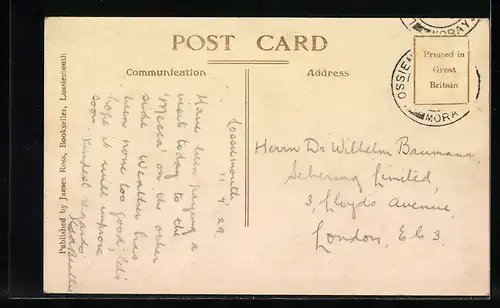 MORAY
POST CARD
Communication
Address
Printed in
Great
Britain
LOSSIEM
MORA
Published by James Ross, Bookseller, Lossiemouth
Lossiemouth
11. 4. 29.
Have been paying a
visit today to the
'Mecca' on the other
side. Weather has
been none too good, let's
hope it will improve
soon. Kindest regards
Herrn Dr Wilhelm Baumann,
Schering Limited,
3, Lloyds Avenue,
London, E C 3.